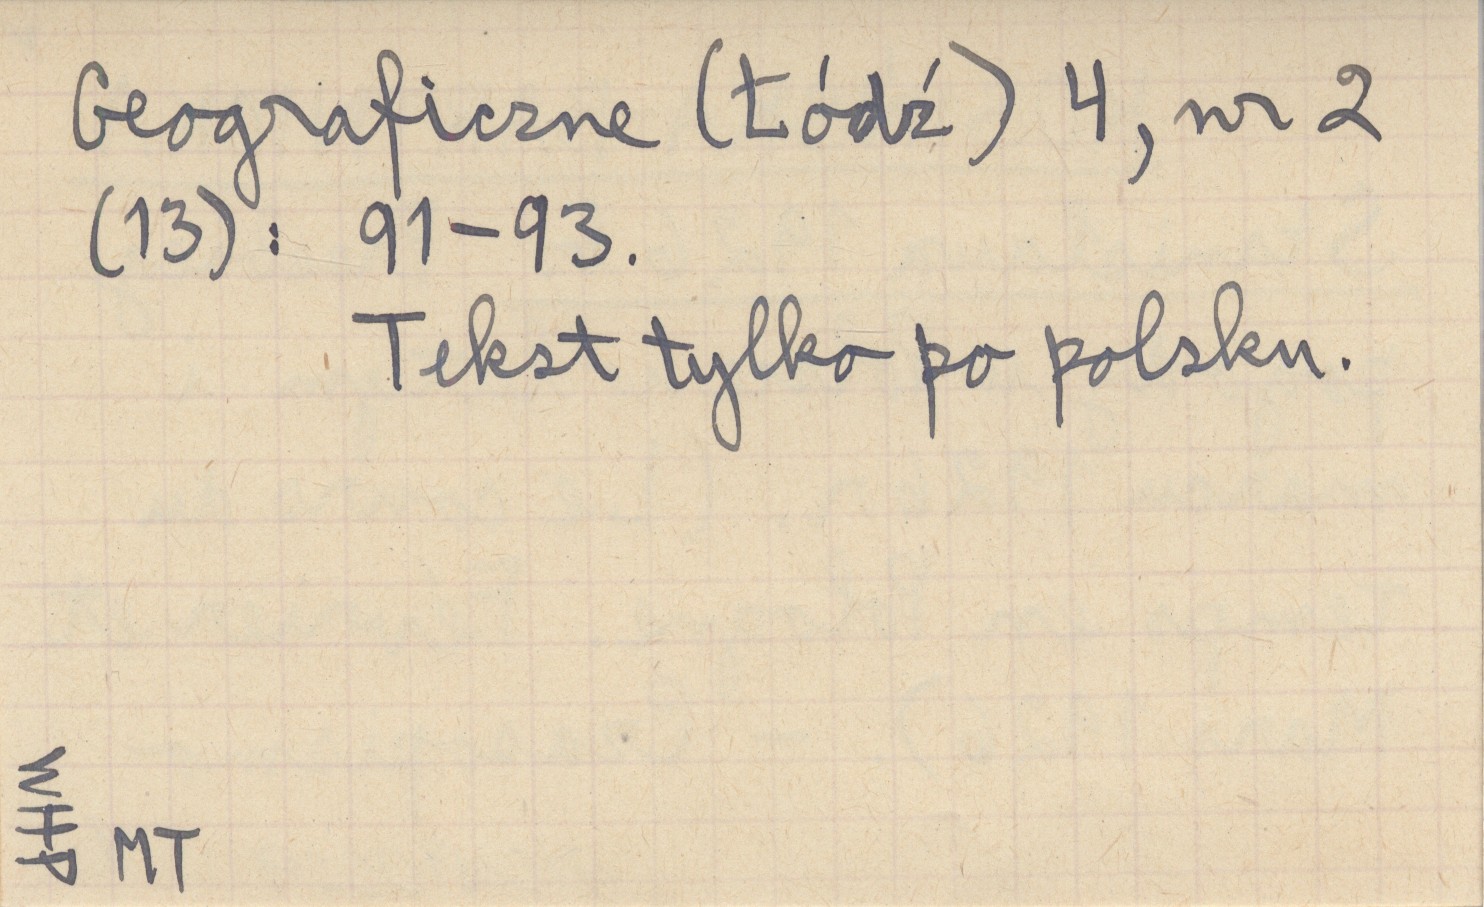 Geograficzne (Łódź) 4, nr 2
(13): 91-93.
Tekst tylko po polsku.
WHP
MT